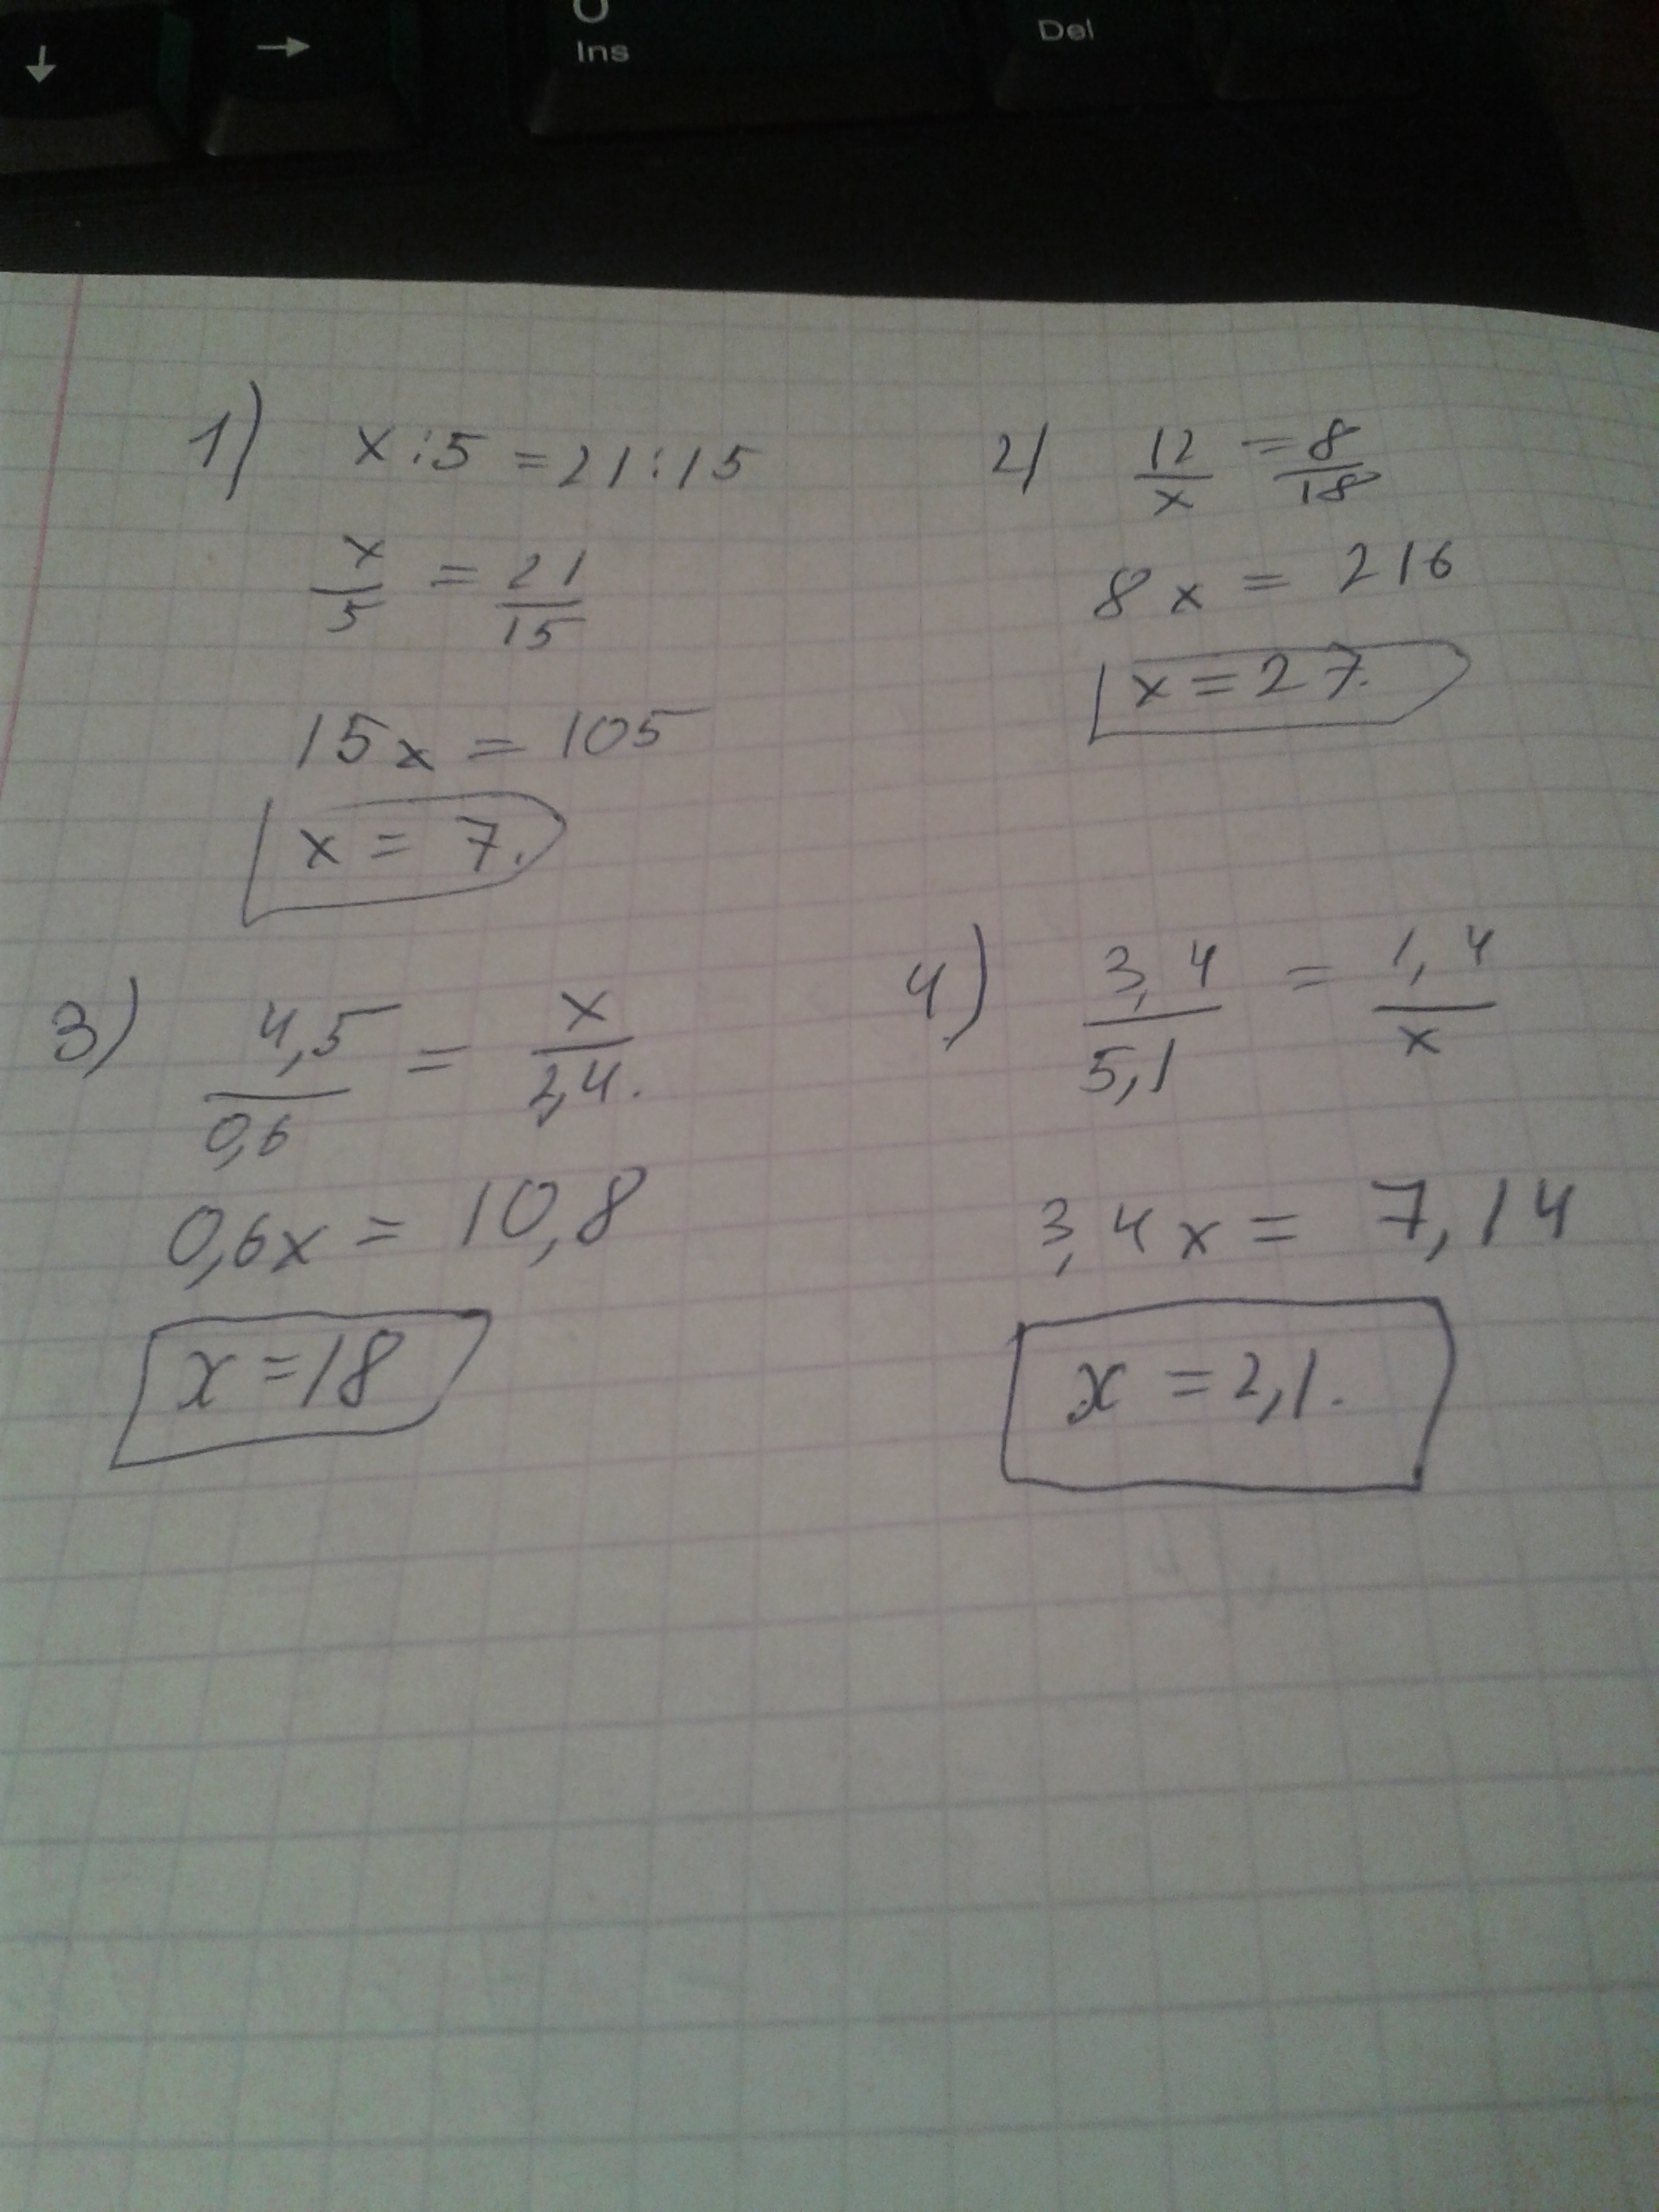 ↓ → 0 Ins Del
1) x:5 = 21:15
x/5 = 21/15
15x = 105
x = 7.
2) 12/x = 8/18
8x = 216
x = 27.
3) 4,5/0,6 = x/2,4.
0,6x = 10,8
x = 18
4) 3,4/5,1 = 1,4/x
3,4x = 7,14
x = 2,1.